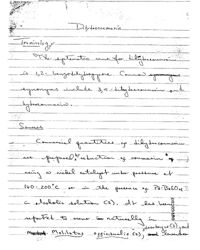 Dihydrocoumarin
Terminology
The systematic name for dihydrocoumarin
is 1,2-benzodihydropyrone. Common
synonyms include 3,4-dihydrocoumarin and
hydrocoumarin.
Sources
Commercial quantities of dihydrocoumarin
are prepared by reduction of coumarin
using a nickel catalyst under pressure at
160-200°C or in the presence of Pd-BaSO4
in alcoholic solution (2). It has been
reported to occur naturally in
Melilotus officinalis (3), and